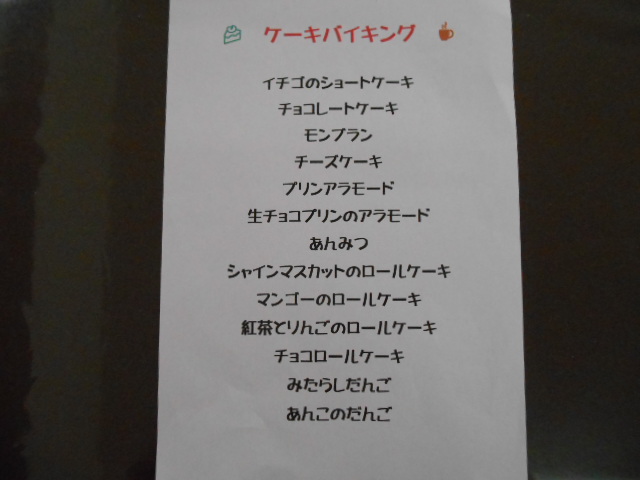 ケーキバイキング
イチゴのショートケーキ
チョコレートケーキ
モンブラン
チーズケーキ
プリンアラモード
生チョコプリンのアラモード
あんみつ
シャインマスカットのロールケーキ
マンゴーのロールケーキ
紅茶とりんごのロールケーキ
チョコロールケーキ
みたらしだんご
あんこのだんご